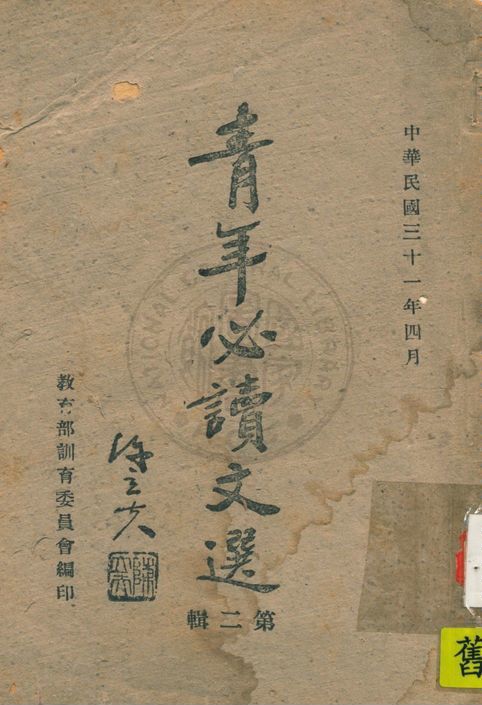 中華民國三十一年四月
青年必讀文選
第二輯
陳立夫
教育部訓育委員會編印
舊